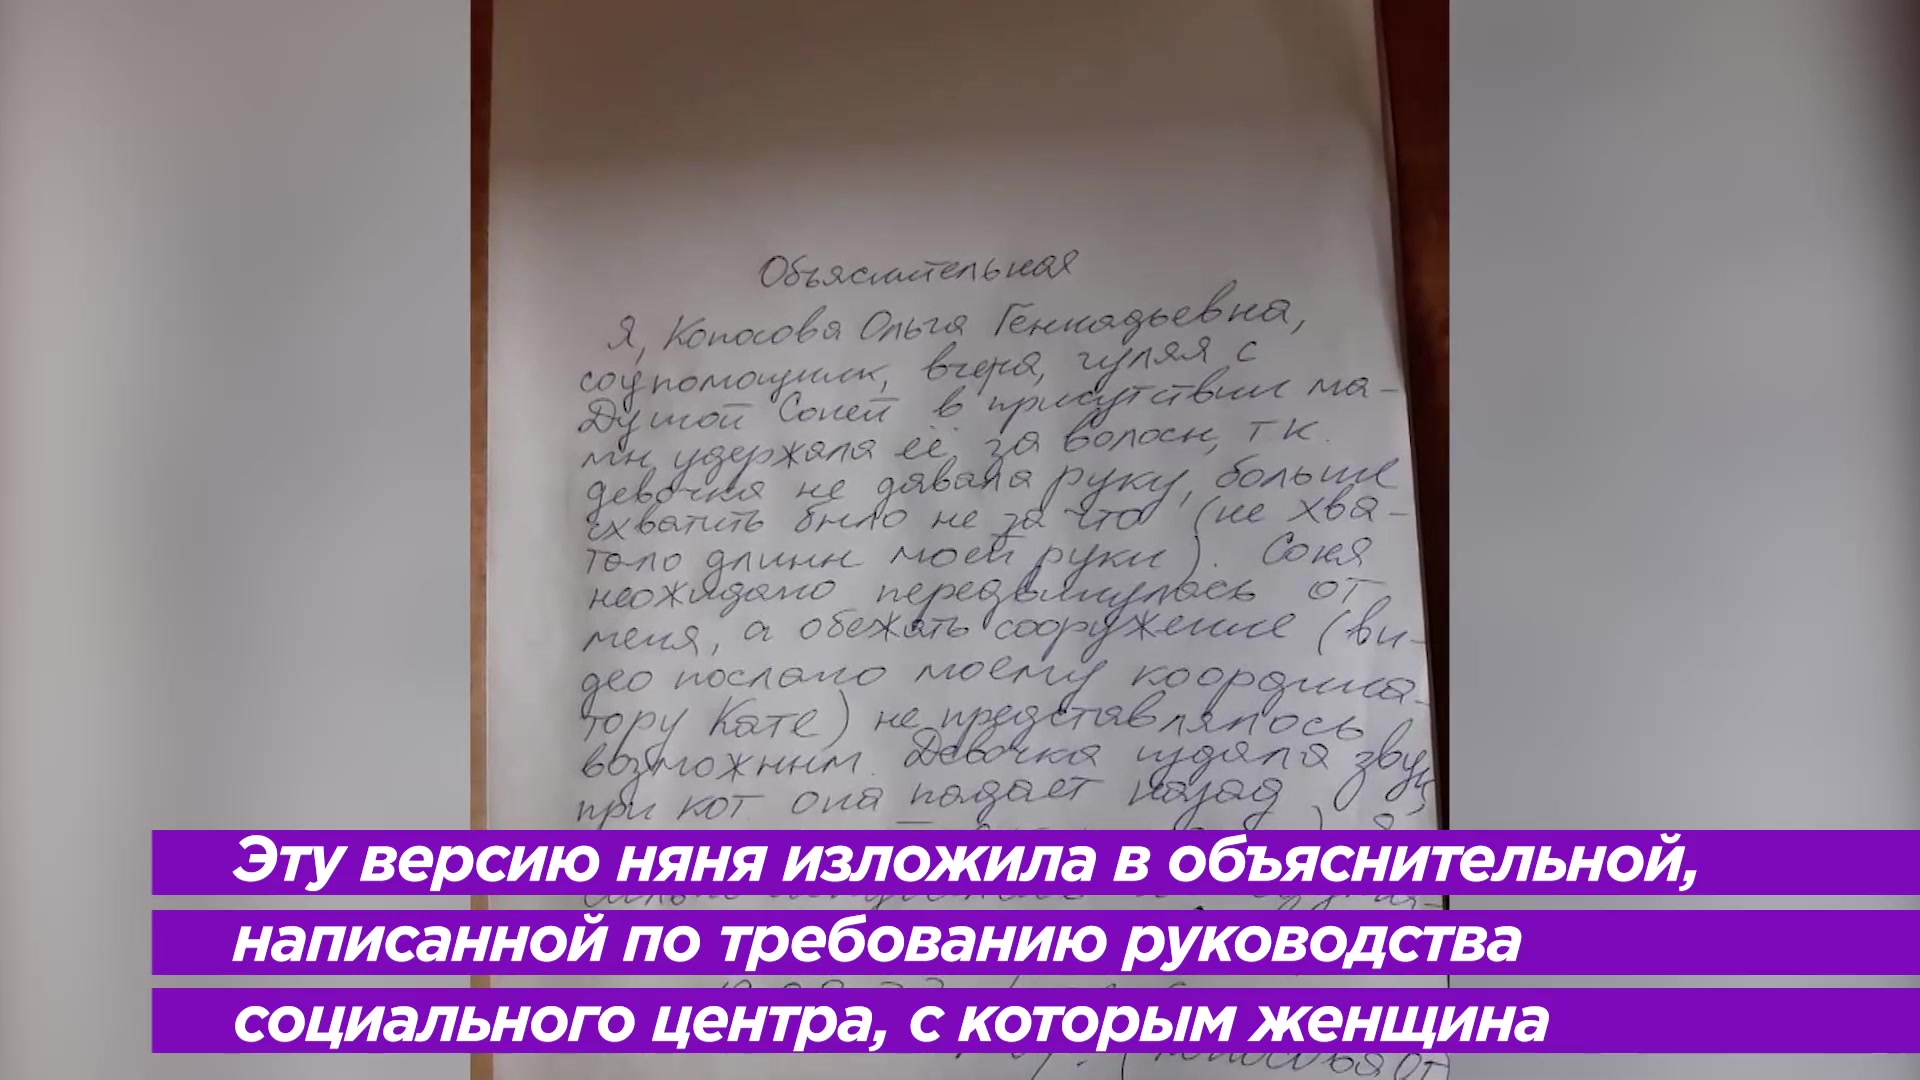 Объяснительная
Я, Копосова Ольга Геннадьевна,
соцпомощник, вчера, гуляя с
Душой Соней в присутствии ма-
мы удержала её за волосы, т к.
девочка не давала руку, больше
схватить было не за что (не хва-
тало длины моей руки). Соня
неожидано передвинулось от
меня, а обежать сооружение (ви-
део послано моему координа-
тору Кате) не представлялось
возможным. Девочка издала звук,
при кот. она падает назад
Эту версию няня изложила в объяснительной,
написанной по требованию руководства
социального центра, с которым женщина